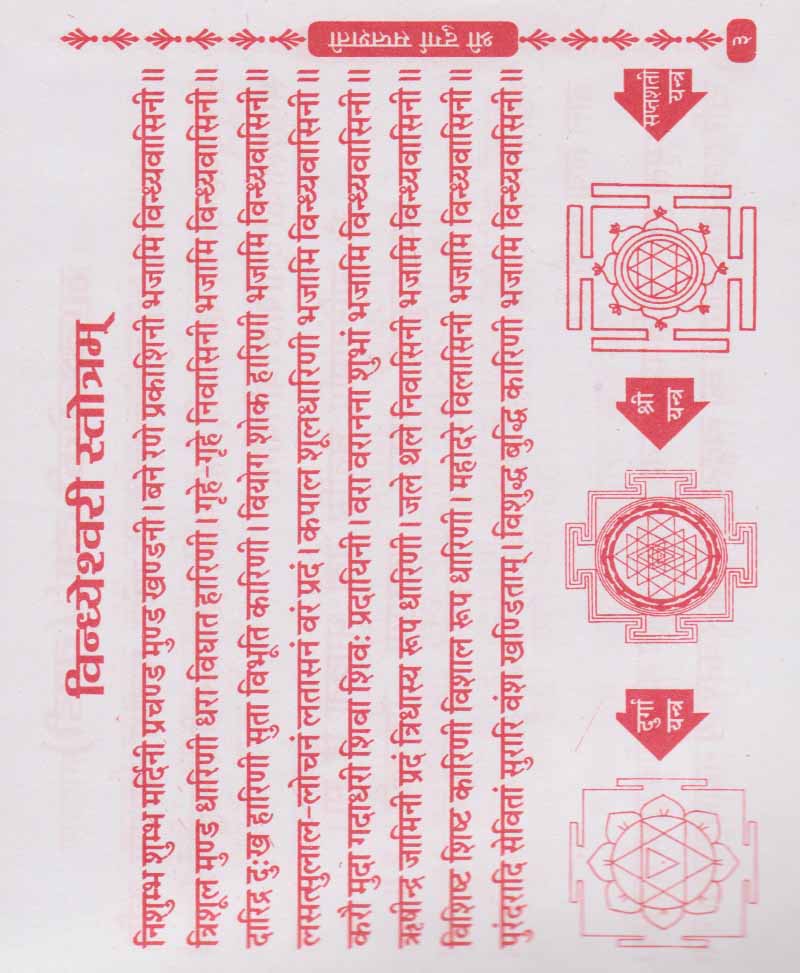 ३
श्री दुर्गा सप्तशती
विन्ध्येश्वरी स्तोत्रम्
निशुम्भ शुम्भ मर्दिनी प्रचण्ड मुण्ड खण्डनी। बने रणे प्रकाशिनी भजामि विन्ध्यवासिनी॥
त्रिशूल मुण्ड धारिणी धरा विघात हारिणी। गृहे-गृहे निवासिनी भजामि विन्ध्यवासिनी॥
दारिद्र दुःख हारिणी सुता विभूति कारिणी। वियोग शोक हारिणी भजामि विन्ध्यवासिनी॥
लसत्सुलाल-लोचनं लतासनं वरं प्रदं। कपाल शूलधारिणी भजामि विन्ध्यवासिनी॥
करौ मुदा गदाधरी शिवा शिवः प्रदायिनी। वरा वरानना शुभां भजामि विन्ध्यवासिनी॥
ऋषीन्द्र जामिनी प्रदं त्रिधास्य रूप धारिणी। जले थले निवासिनी भजामि विन्ध्यवासिनी॥
विशिष्ट शिष्ट कारिणी विशाल रूप धारिणी। महोदरे विलासिनी भजामि विन्ध्यवासिनी॥
पुरंदरादि सेवितां सुरारि वंश खण्डिताम्। विशुद्ध बुद्धि कारिणी भजामि विन्ध्यवासिनी॥
दुर्गा
यन्त्र
श्री
यन्त्र
सप्तशती
यन्त्र